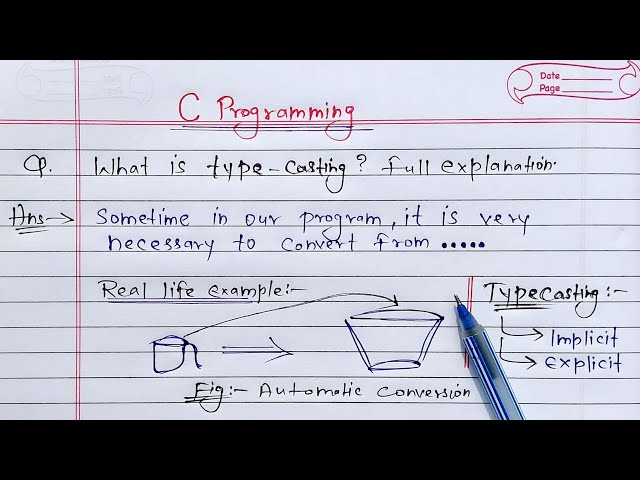 Date
Page
C Programming
Q. What is type-casting? Full explanation.
Ans→ Sometime in our program, it is very
necessary to convert from .....
Real life example:-
Typecasting:-
Implicit
Explicit
Fig:- Automatic conversion